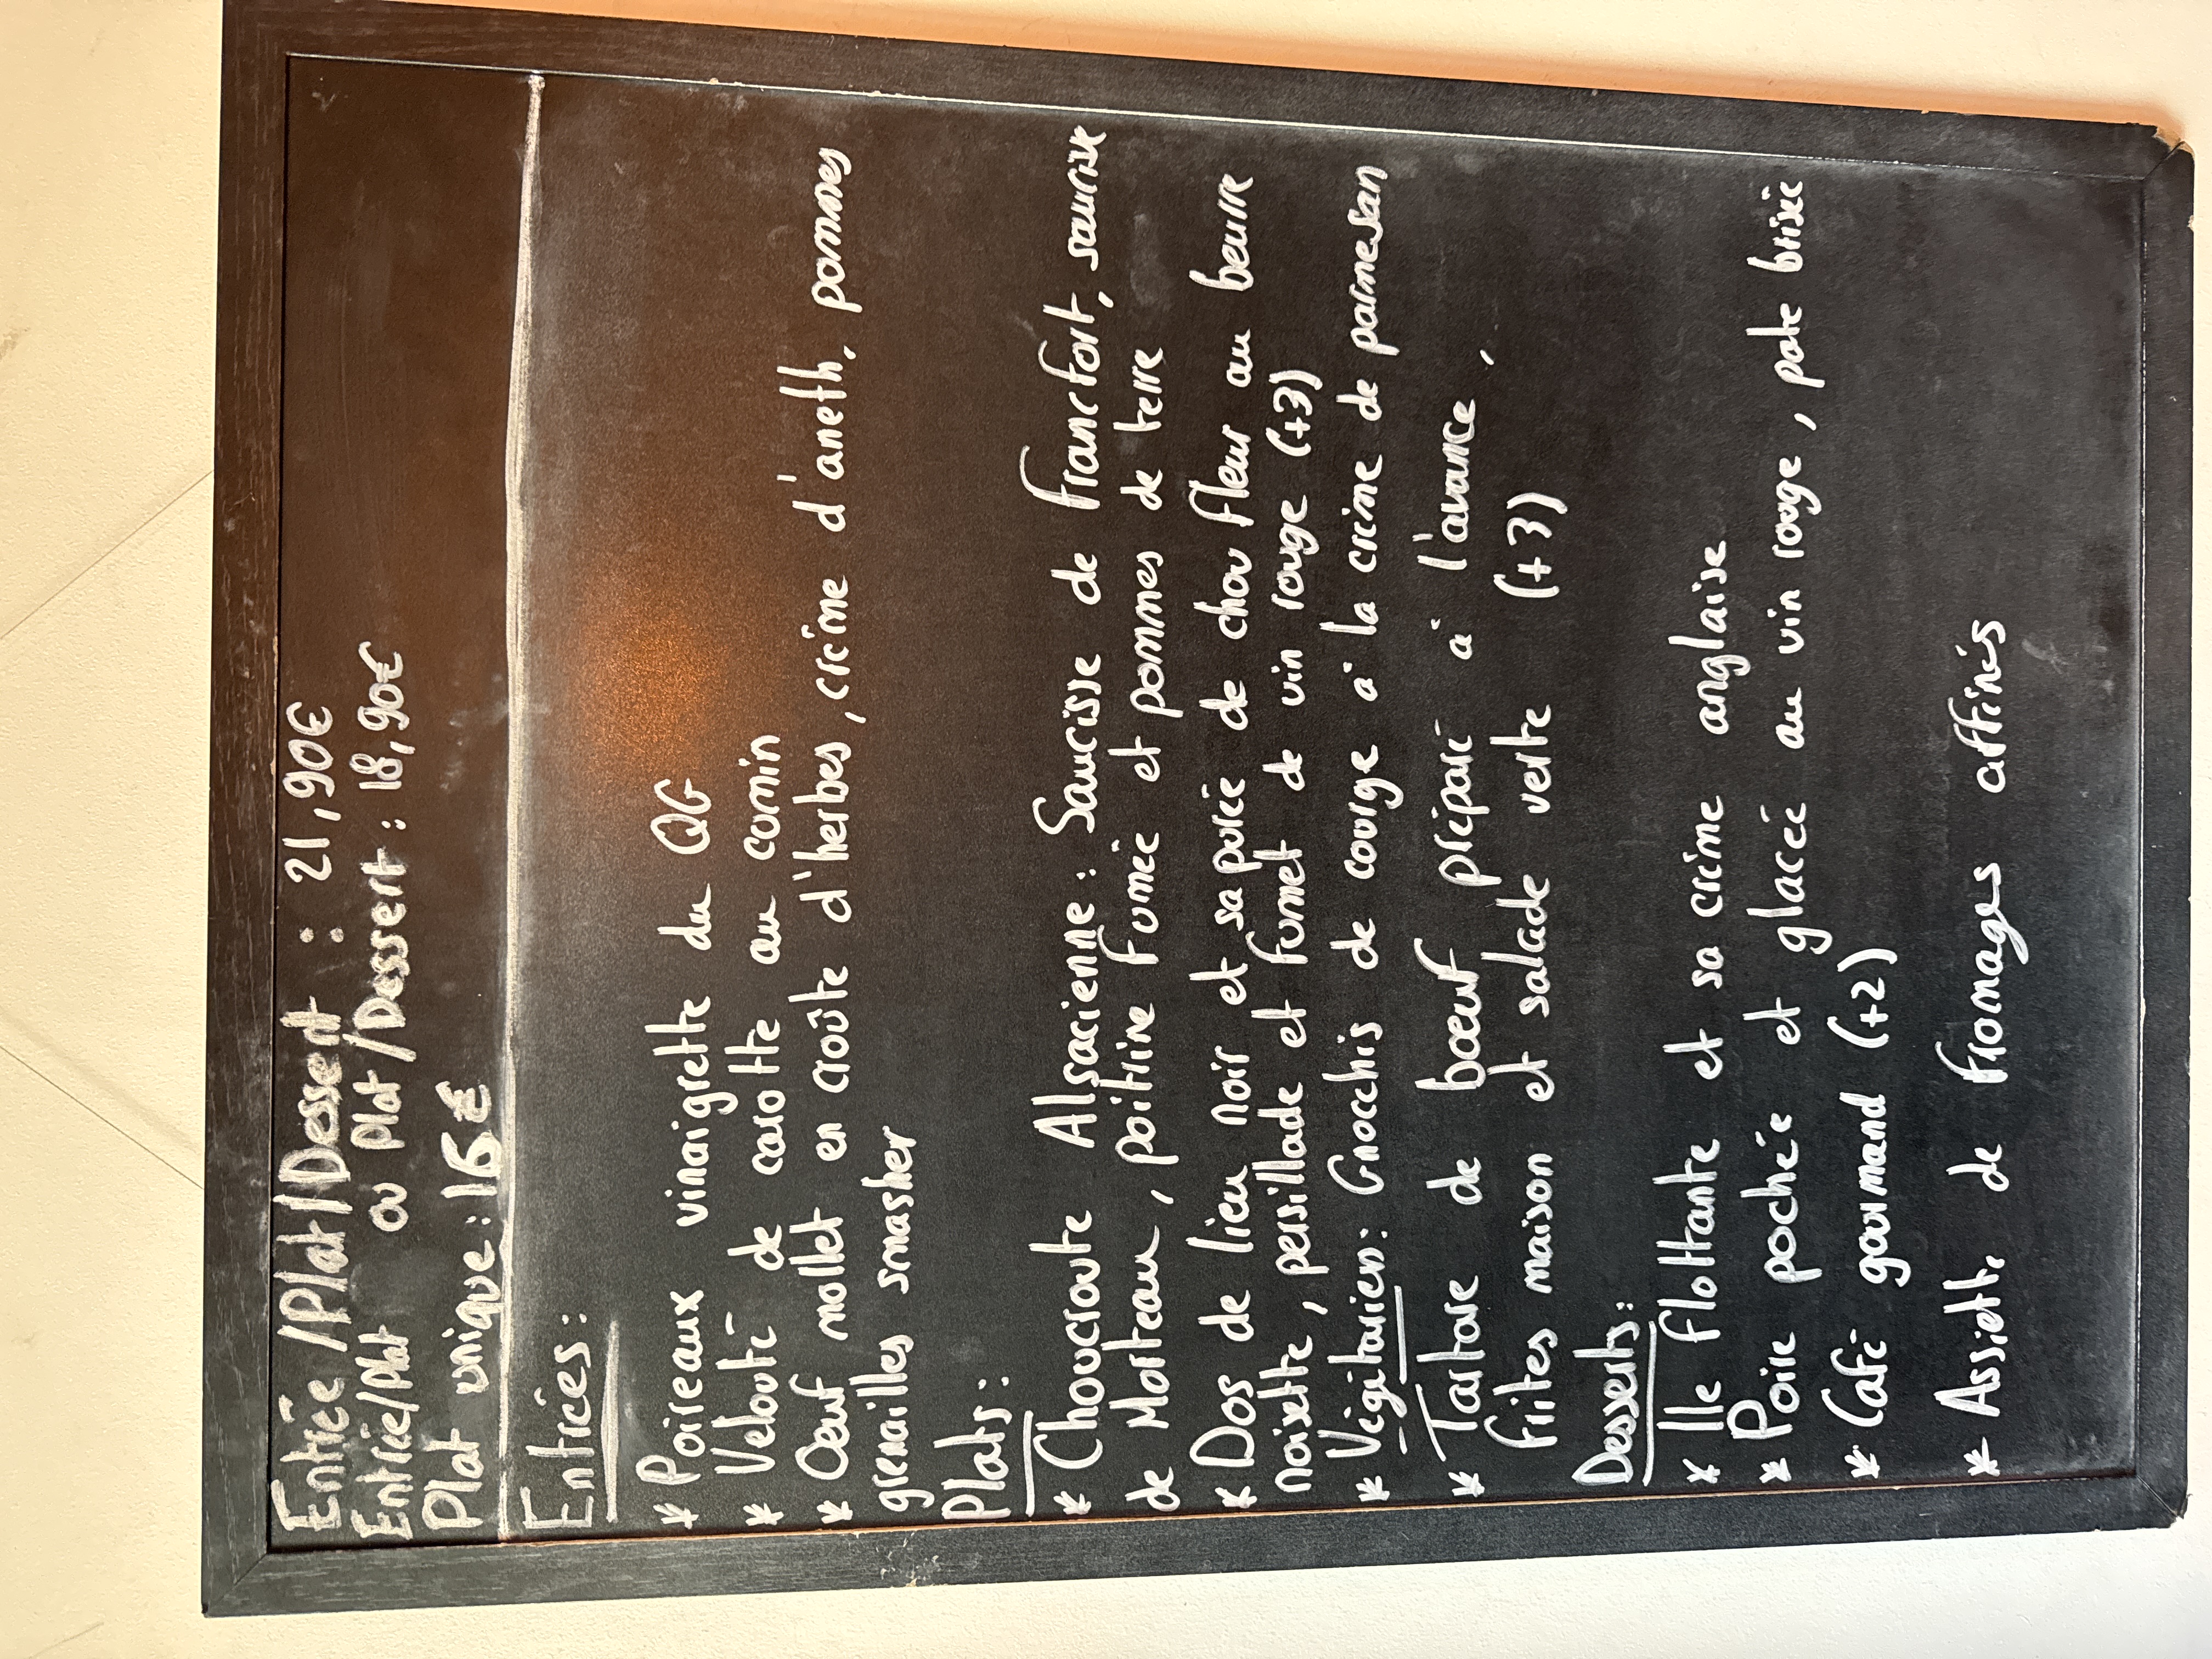 Entrée/Plat/Dessert : 21,90€
Entrée/Plat ou Plat/Dessert : 18,90€
Plat unique : 16€
Entrées :
* Poireaux vinaigrette du QG
* Velouté de carotte au cumin
* Œuf mollet en croûte d'herbes, crème d'aneth, pommes
grenailles smasher
Plats :
* Choucroute Alsacienne : Saucisse de francfort, saucisse
de Morteau, poitrine fumée et pommes de terre
* Dos de lieu noir et sa purée de chou fleur au beurre
noisette, persillade et fumet de vin rouge (+3)
* Végétarien : Gnocchis de courge à la crème de parmesan
* Tartare de bœuf préparé à l'avance,
frites maison et salade verte (+3)
Desserts :
* Ile flottante et sa crème anglaise
* Poire pochée et glacée au vin rouge, pate brisée
* Café gourmand (+2)
* Assiette de fromages affinés